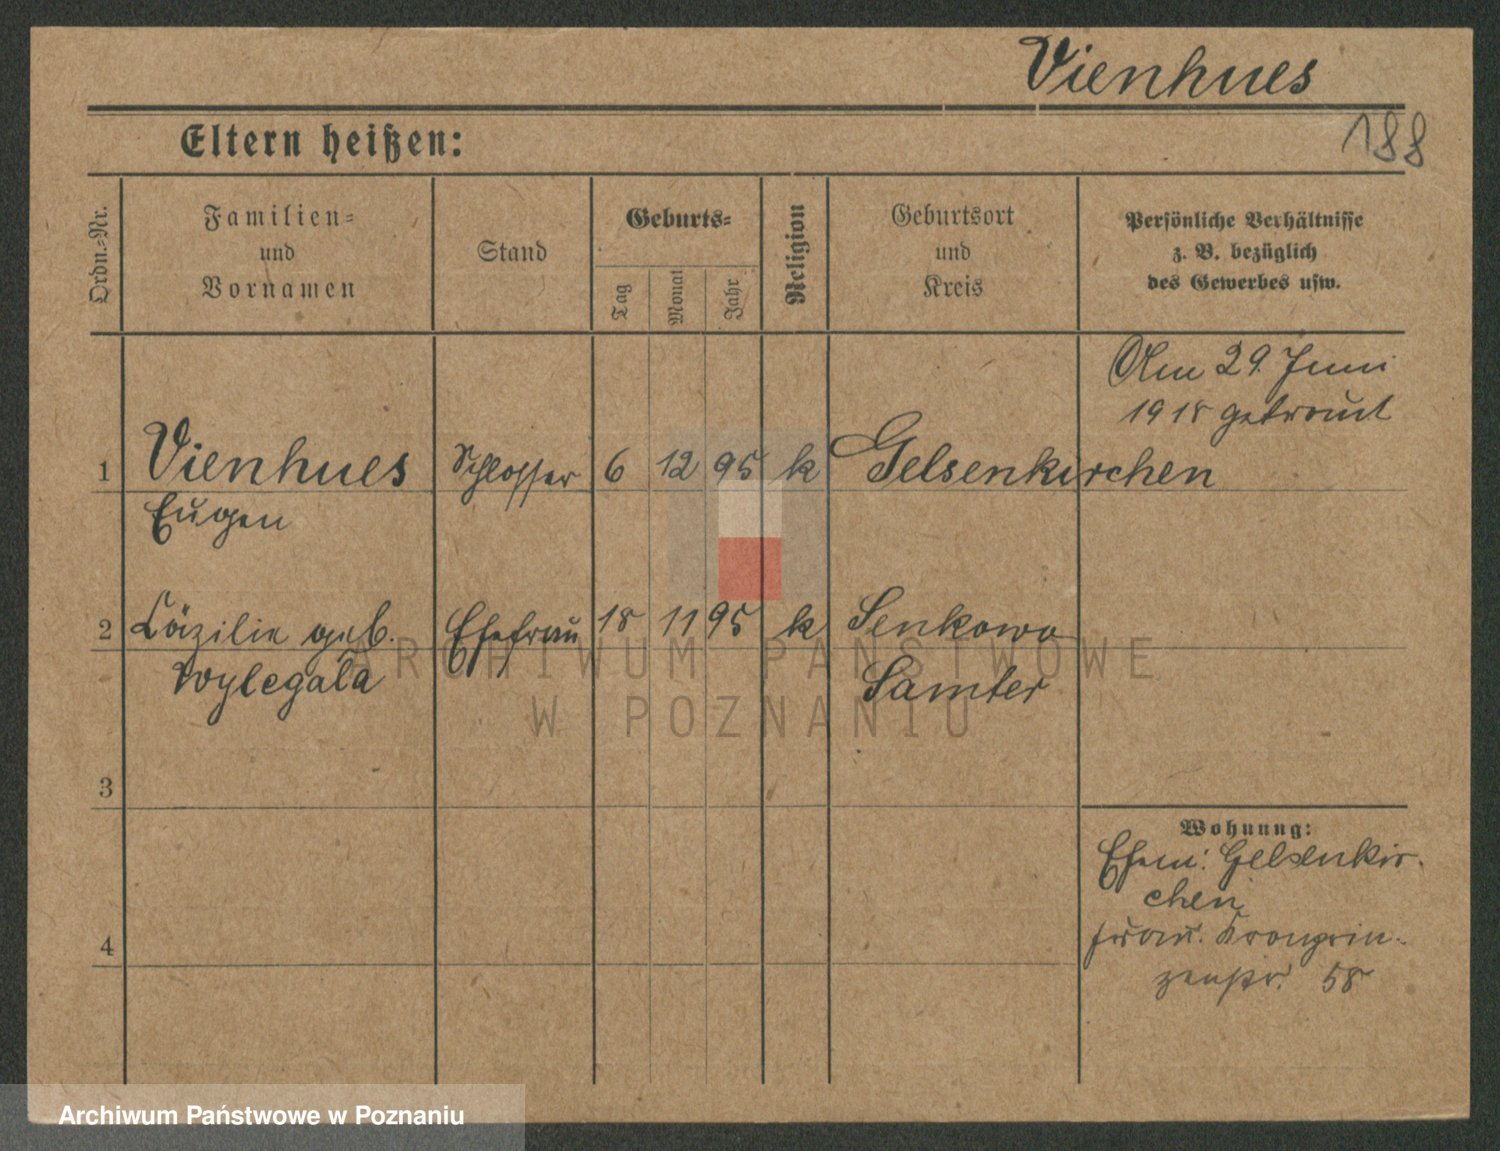 Vienhues
188
Eltern heißen:
Ordn.-Nr.
Familien-
und
Vornamen
Stand
Geburts-
Tag
Monat
Jahr
Religion
Geburtsort
und
Kreis
Persönliche Verhältnisse
z. B. bezüglich
des Gewerbes usw.
Am 29. Juni
1918 getraut
1 Vienhues Schlosser 6 12 95 k Gelsenkirchen
Eugen
2 Cäzilie geb. Ehefrau 18 11 95 k Senkowo
Wylegala Samter
ARCHIWUM PAŃSTWOWE
W POZNANIU
3
Wohnung:
Ehem: Gelsenkir-
chen
4
Frau: Kronprin-
zenstr. 58
Archiwum Państwowe w Poznaniu